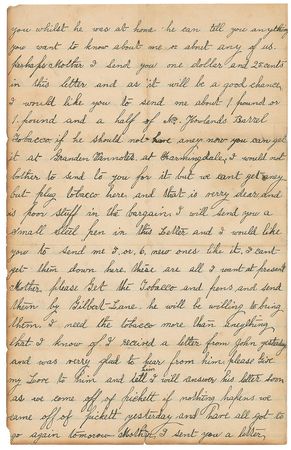 you whilst he was at home he can tell you anything
you want to know about me or about any of us.
perhaps Mother I send you one doller and 25 cents
in this letter and as it will be a good chance,
I would like you to send me about 1 pound or
1 pound and a half of Mr. Howlands Barrel
Tobacco, if he should not have anny now you can get
it at Crander at Farmingdale, I would not
bother to send to you for it but we cant get aney
but plug tobacco here and that is verry dear and
is poor stuff in the bargain I will send you a
small steel pen in this Letter and I would like
you to send me 5, or, 6, new ones like it, I cant
get them down here, these are all I want at present
Mother, please Get the Tobacco and pens, and send
them by Gilbert Lane. he will be willing to bring
them. I need the tobacco more than aneything
that I know of I recived a letter from John yesterday
and was verry glad to hear from him please give
my Love to him and tell him I will answer his letter soon
as we come off of pickett if nothing hapens we
came off of pickett yesterday and have all got to
go again tomorow Mother, I sent you a letter,